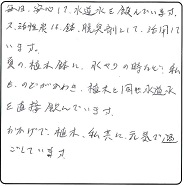 毎日、安心して、水道水を飲んでいます。
又、活性炭は、鉢、脱臭剤として、活用して
います。
夏の、植木鉢に、水やりの時など、私
も、のどがかわき、植木と同じ水道水
を直接飲んでいます。
おかげで、植木、私共に、元気で過
ごしています。